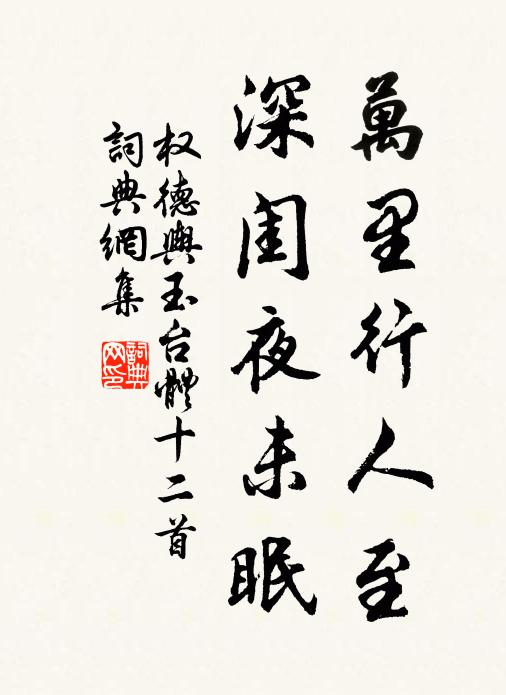 萬里行人至
深閨夜未眠
权德輿玉台體十二首
詞典網集
詞典網印